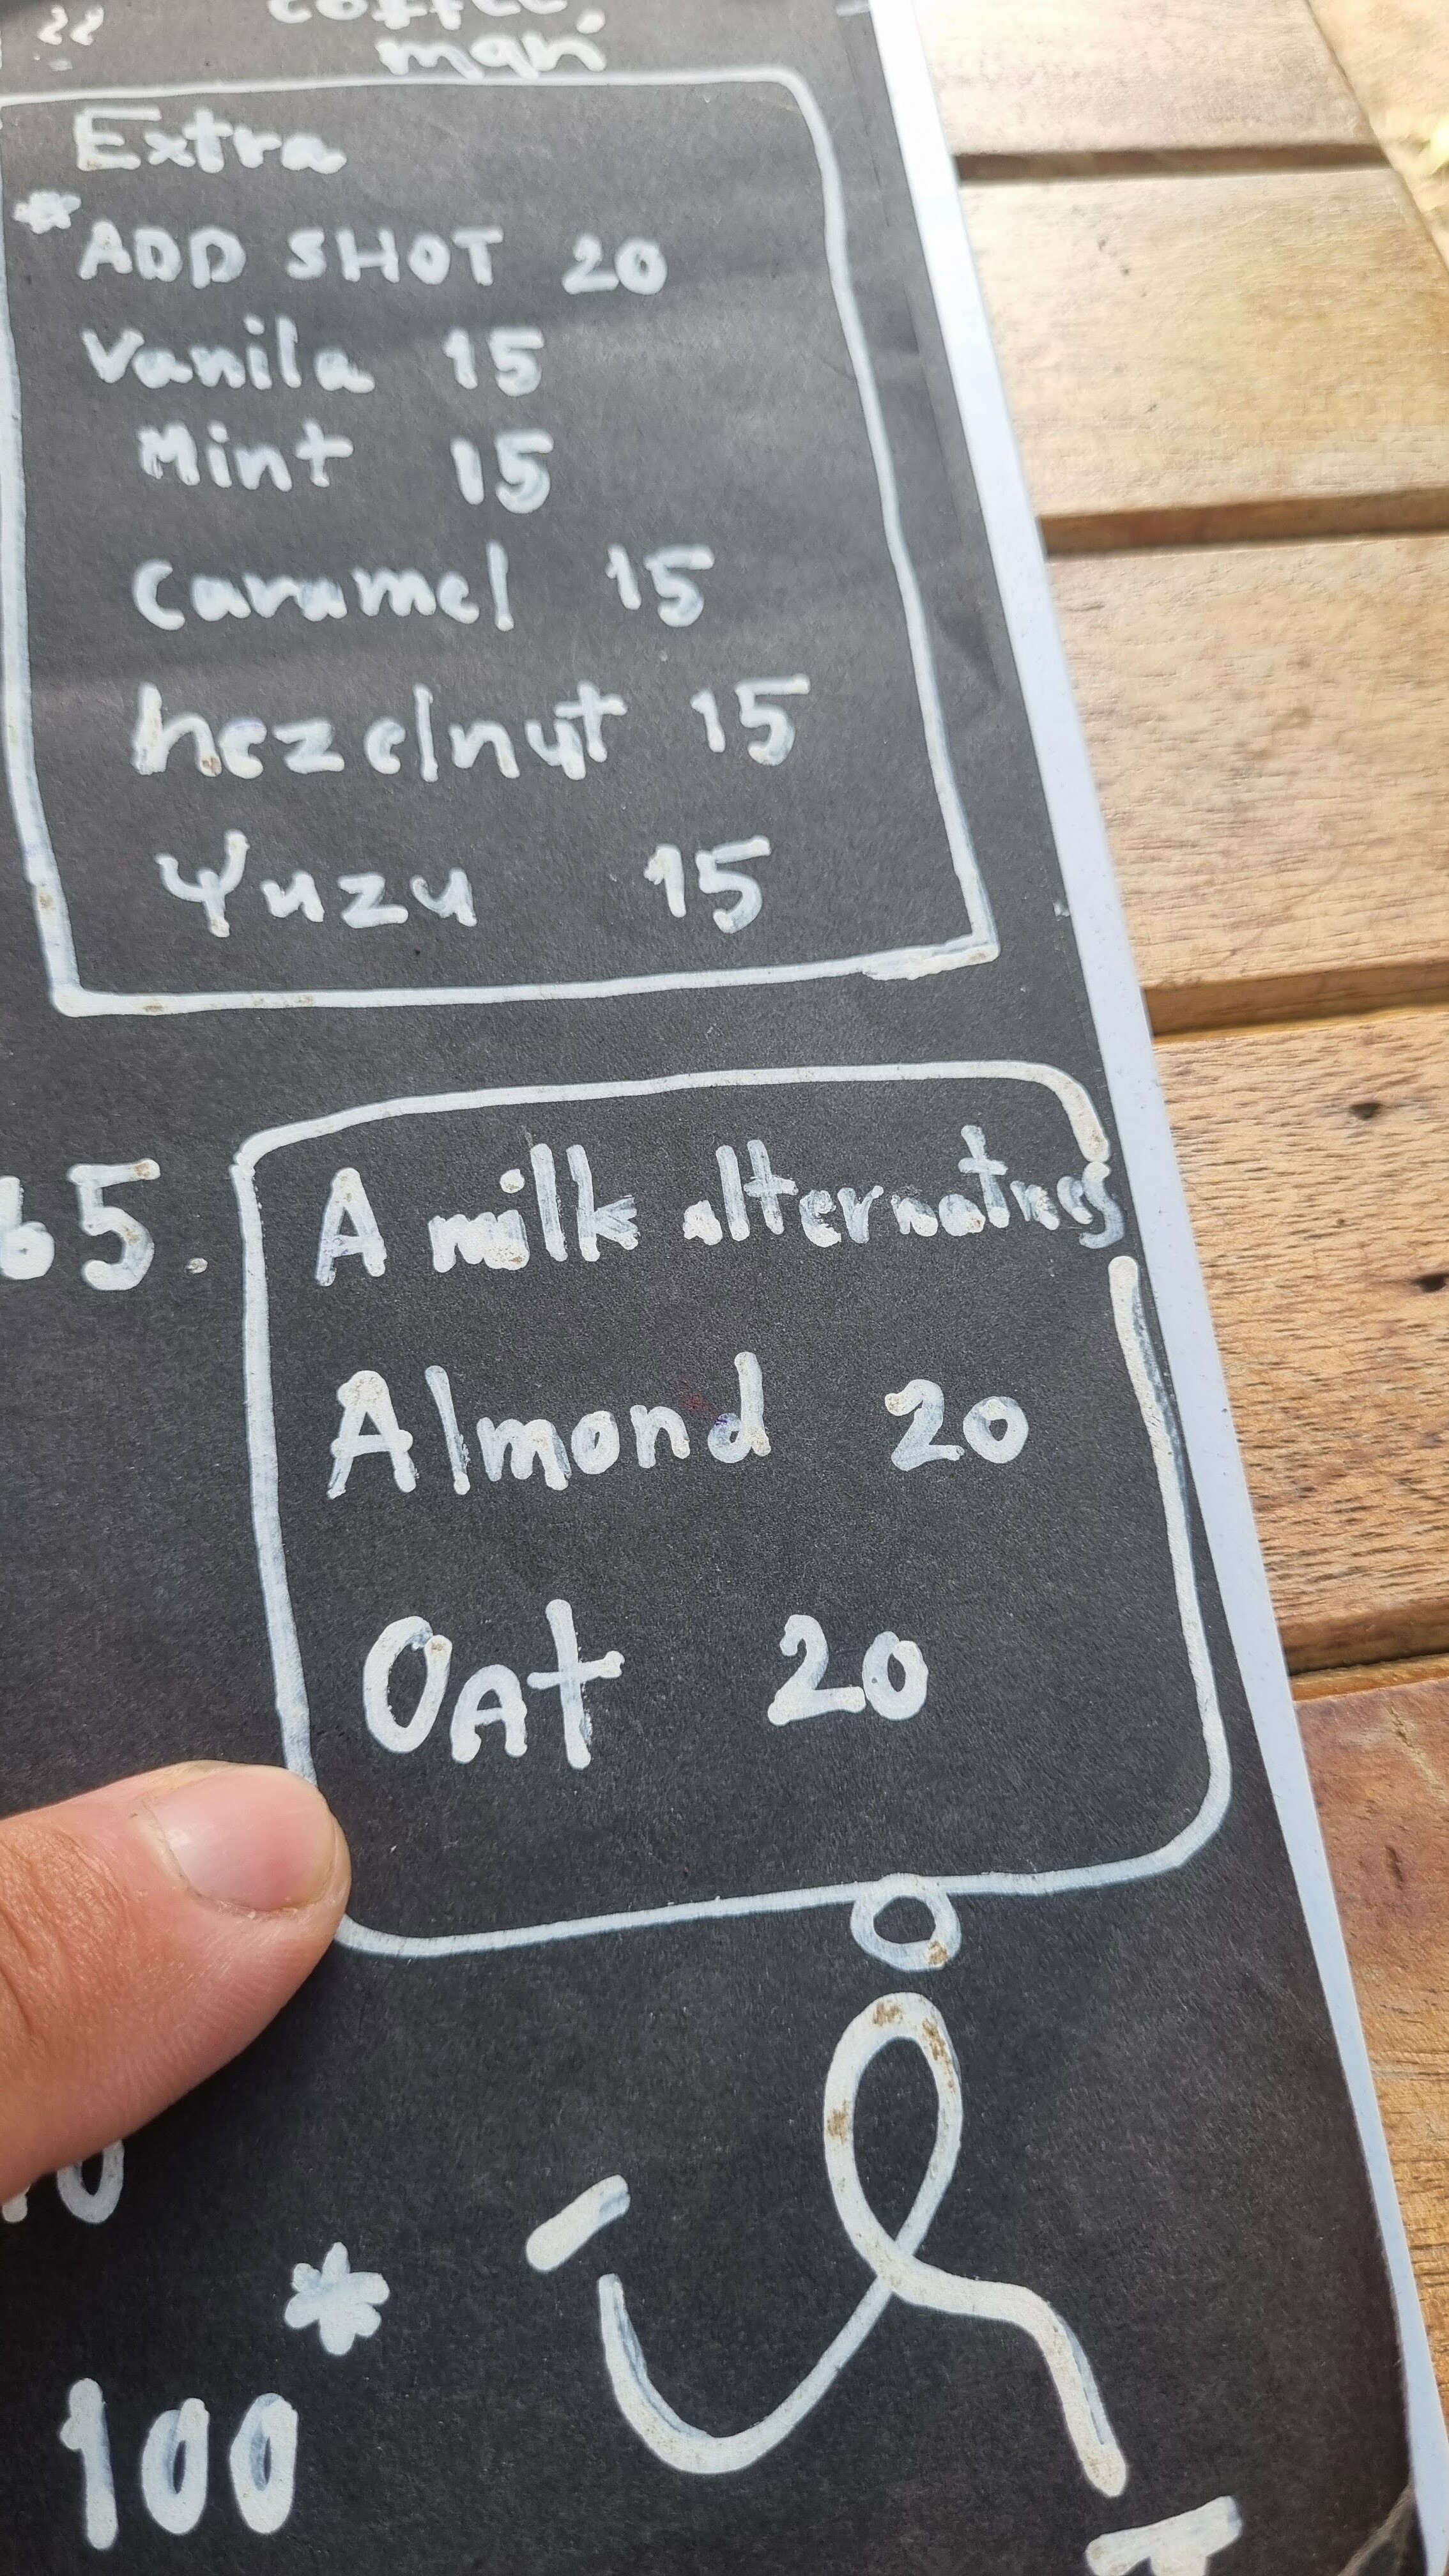 coffee.
man
Extra
* ADD SHOT 20
Vanila 15
Mint 15
Caramel 15
hezelnut 15
Yuzu 15
65.
A milk alternatives
Almond 20
OAt 20
*
100